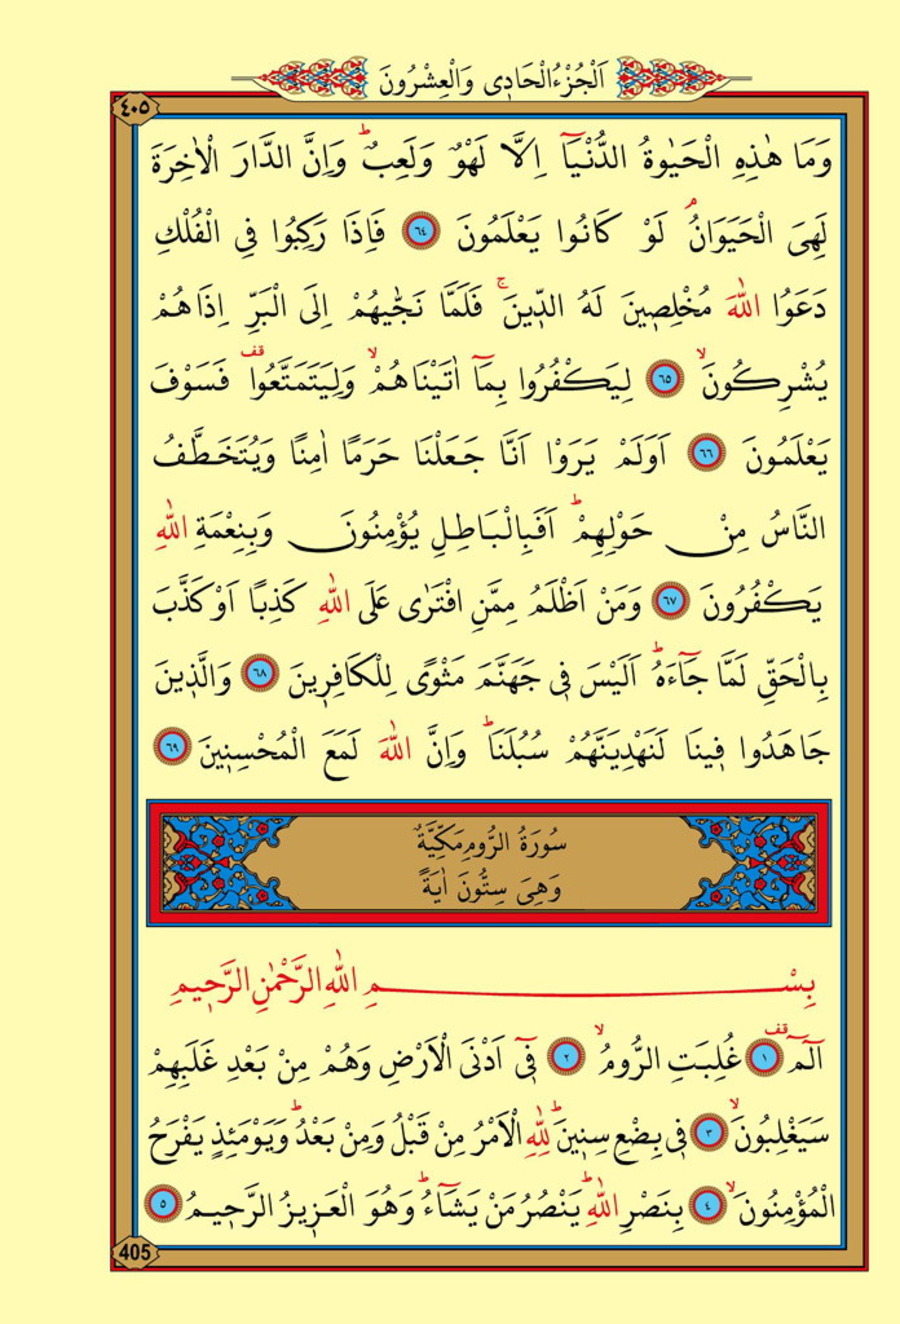 اَلْجُزْءُ الْحَادِى وَالْعِشْرُونَ
٤٠٥
وَمَا هٰذِهِ الْحَيٰوةُ الدُّنْيَٓا اِلَّا لَهْوٌ وَلَعِبٌۜ وَاِنَّ الدَّارَ الْاٰخِرَةَ
لَهِىَ الْحَيَوَانُۢ لَوْ كَانُوا يَعْلَمُونَ ﴿٦٤﴾ فَاِذَا رَكِبُوا فِى الْفُلْكِ
دَعَوُا اللّٰهَ مُخْلِصٖينَ لَهُ الدّٖينَۚ فَلَمَّا نَجّٰيهُمْ اِلَى الْبَرِّ اِذَا هُمْ
يُشْرِكُونَۙ ﴿٦٥﴾ لِيَكْفُرُوا بِمَٓا اٰتَيْنَاهُمْۙ وَلِيَتَمَتَّعُوا۠ قف فَسَوْفَ
يَعْلَمُونَ ﴿٦٦﴾ اَوَلَمْ يَرَوْا اَنَّا جَعَلْنَا حَرَمًا اٰمِنًا وَيُتَخَطَّفُ
النَّاسُ مِنْ حَوْلِهِمْۜ اَفَبِالْبَاطِلِ يُؤْمِنُونَ وَبِنِعْمَةِ اللّٰهِ
يَكْفُرُونَ ﴿٦٧﴾ وَمَنْ اَظْلَمُ مِمَّنِ افْتَرٰى عَلَى اللّٰهِ كَذِبًا اَوْ كَذَّبَ
بِالْحَقِّ لَمَّا جَٓاءَهُۜ اَلَيْسَ فٖى جَهَنَّمَ مَثْوًى لِلْكَافِرٖينَ ﴿٦٨﴾ وَالَّذٖينَ
جَاهَدُوا فٖينَا لَنَهْدِيَنَّهُمْ سُبُلَنَاۜ وَاِنَّ اللّٰهَ لَمَعَ الْمُحْسِنٖينَ ﴿٦٩﴾
سُورَةُ الرُّومِ مَكِّيَّةٌ
وَهِىَ سِتُّونَ اٰيَةً
بِسْمِ اللّٰهِ الرَّحْمٰنِ الرَّحٖيمِ
الٓمٓ قف ﴿١﴾ غُلِبَتِ الرُّومُۙ ﴿٢﴾ فٖٓى اَدْنَى الْاَرْضِ وَهُمْ مِنْ بَعْدِ غَلَبِهِمْ
سَيَغْلِبُونَۙ ﴿٣﴾ فٖى بِضْعِ سِنٖينَۜ لِلّٰهِ الْاَمْرُ مِنْ قَبْلُ وَمِنْ بَعْدُۜ وَيَوْمَئِذٍ يَفْرَحُ
الْمُؤْمِنُونَۙ ﴿٤﴾ بِنَصْرِ اللّٰهِۜ يَنْصُرُ مَنْ يَشَٓاءُۜ وَهُوَ الْعَزٖيزُ الرَّحٖيمُ ﴿٥﴾
405